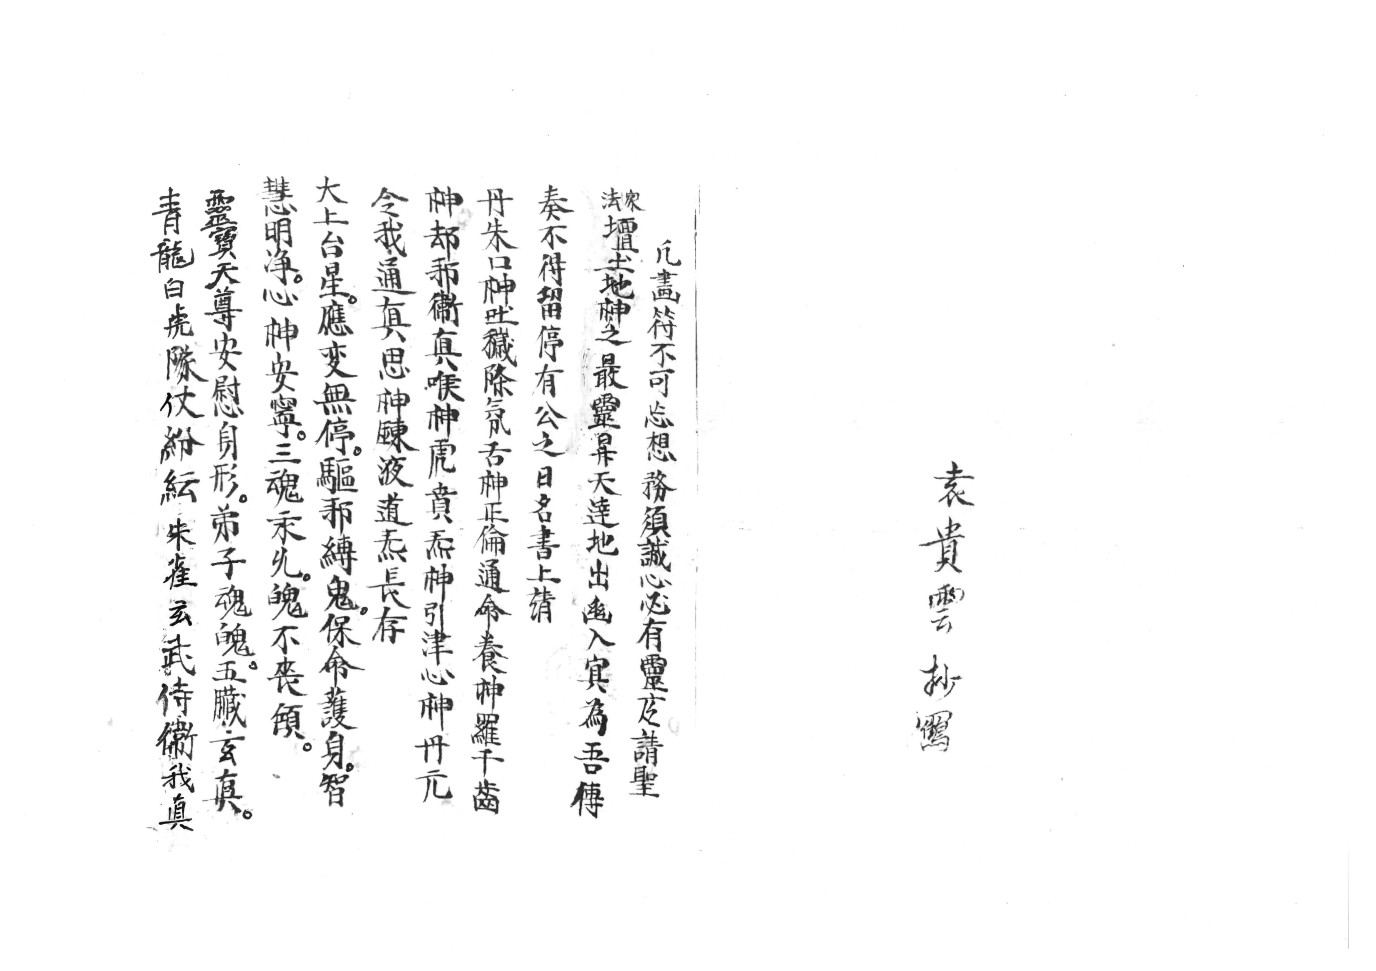 袁貴雲抄寫
凡畫符不可忘想務須誠心必有靈応請聖
家法壇土地神之最靈昇天達地出幽入冥為吾傳
奏不得留停有公之日名書上清
丹朱口神吐穢除氛舌神正倫通命養神羅千齒
神却邪衛真喉神虎賁炁神引津心神丹元
令我通真思神鍊液道炁長存
大上台星。應变無停。驅邪縛鬼。保命護身。智
慧明净。心神安寧。三魂永久。魄不丧傾。
靈寶天尊安慰身形。弟子魂魄。五臟玄真。
青龍白虎隊仗紛紜朱雀玄武侍衛我真